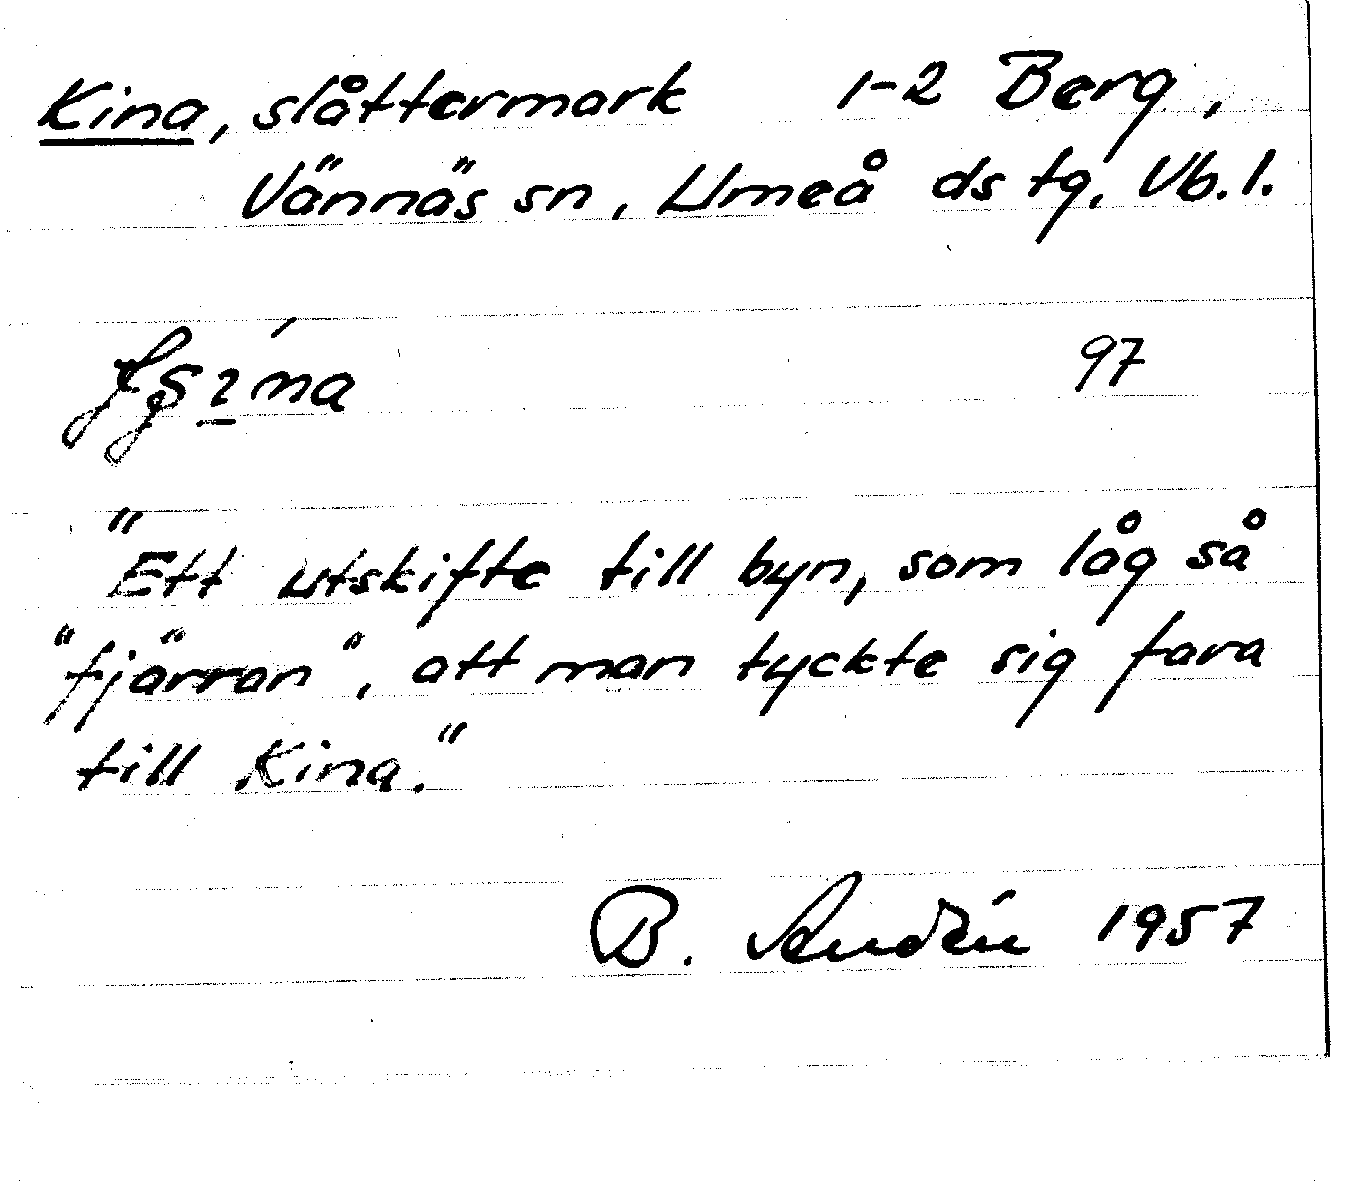 Kina, slåttermark 1-2 Berg,
Vännäs sn, Umeå ds tg. Vb. l.
97
"Ett utskifte till byn, som låg så
"fjärran", att man tyckte sig fara
till Kina."
B. Audén 1957